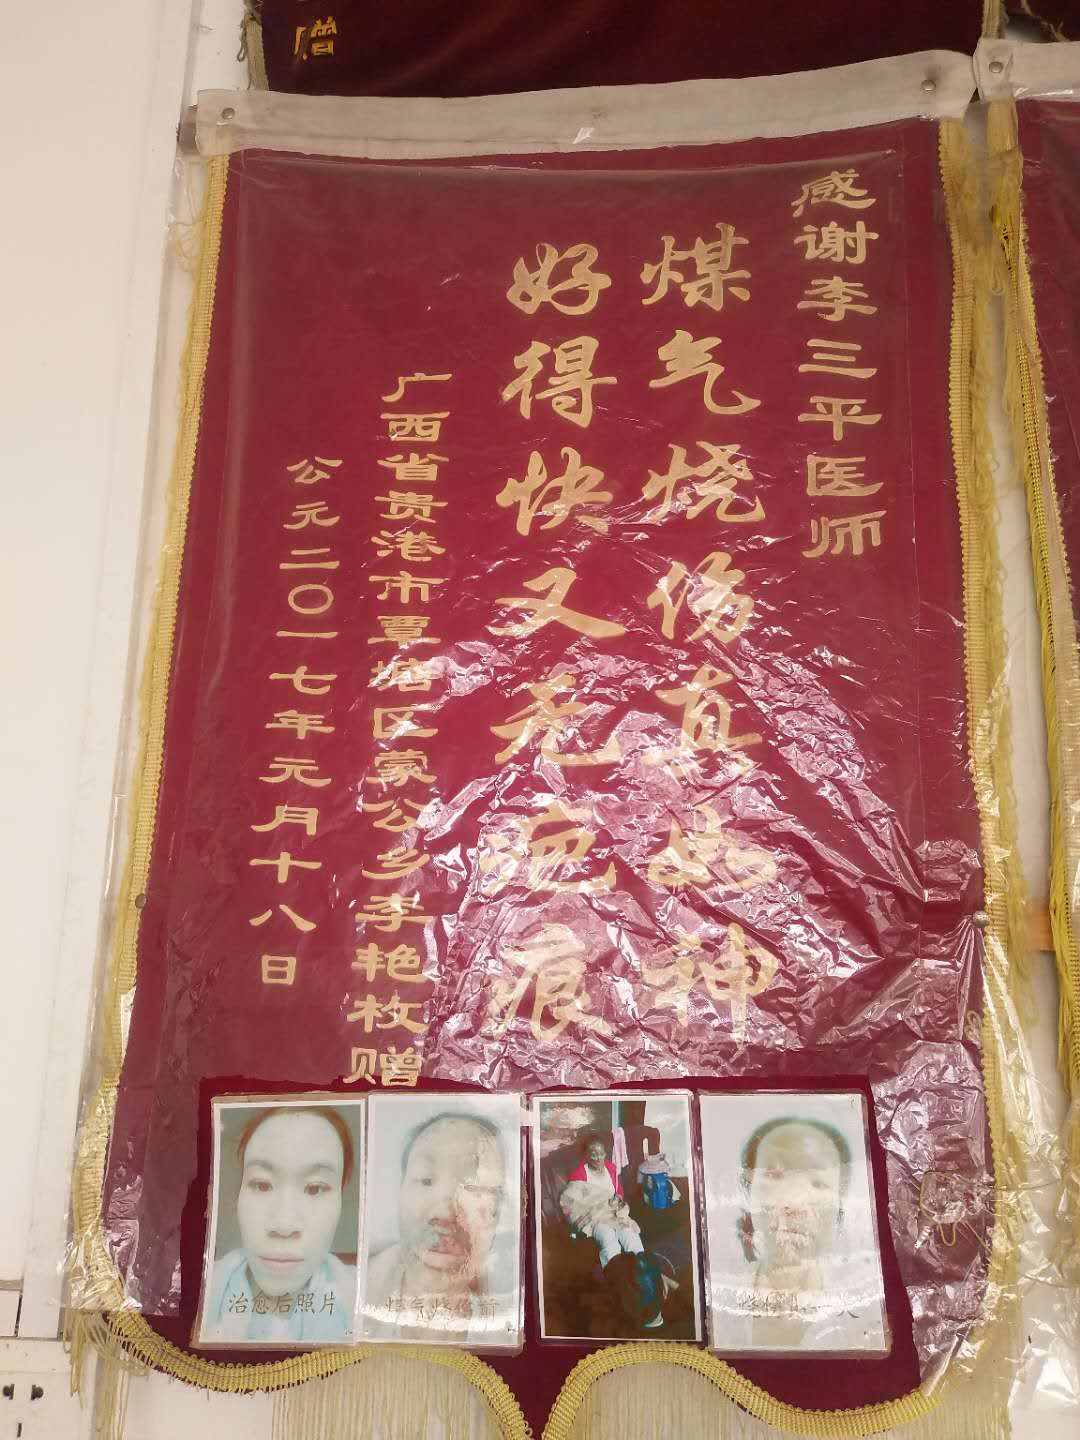 赠
感谢李三平医师
煤气烧伤真品神
好得快又无疤痕
广西省贵港市覃塘区蒙公乡李艳枚赠
公元二〇一七年元月十八日
治愈后照片
煤气烧伤前